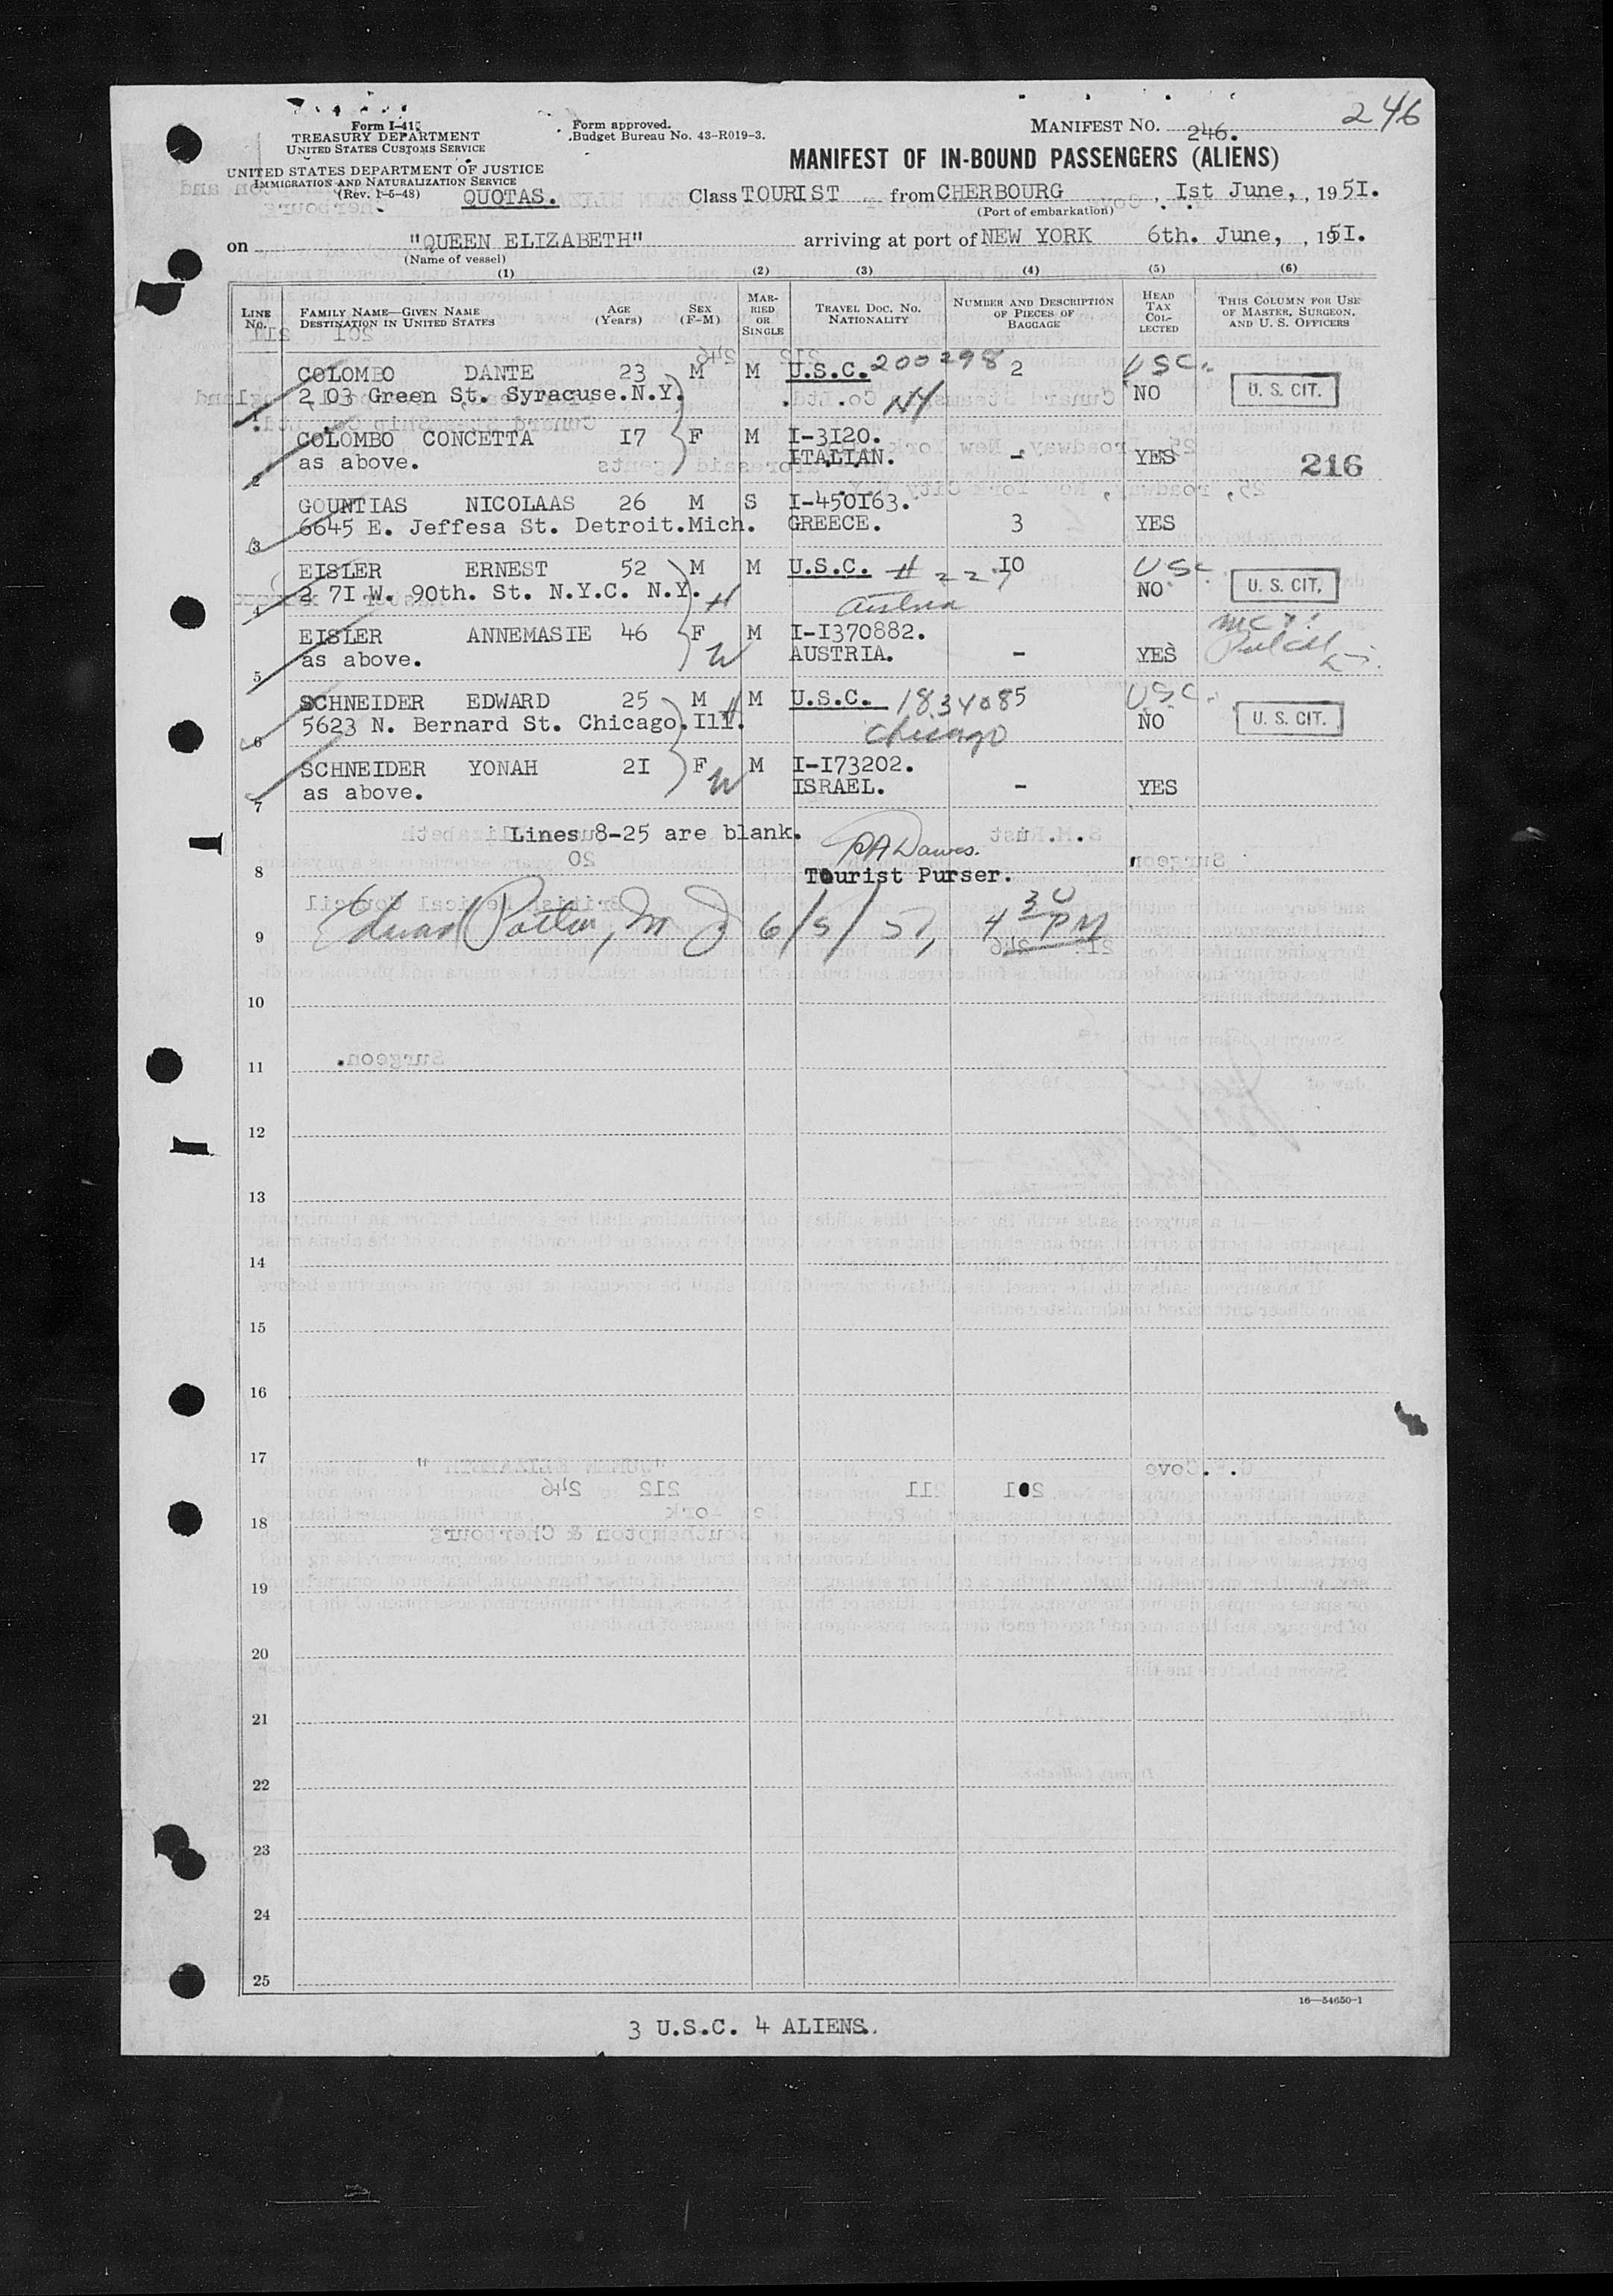 246
Form I-415
TREASURY DEPARTMENT
UNITED STATES CUSTOMS SERVICE
UNITED STATES DEPARTMENT OF JUSTICE
IMMIGRATION AND NATURALIZATION SERVICE
(Rev. 1-5-48)
QUOTAS.
Form approved.
Budget Bureau No. 43-R019-3.
MANIFEST NO. 246.
MANIFEST OF IN-BOUND PASSENGERS (ALIENS)
Class TOURIST from CHERBOURG, Ist June, , 195I.
(Port of embarkation)
on "QUEEN ELIZABETH" arriving at port of NEW YORK 6th. June, , 195I.
(Name of vessel)
(1) (2) (3) (4) (5) (6)
LINE No. FAMILY NAME—GIVEN NAME DESTINATION IN UNITED STATES AGE (Years) SEX (F-M) MARRIED OR SINGLE TRAVEL DOC. NO. NATIONALITY NUMBER AND DESCRIPTION OF PIECES OF BAGGAGE HEAD TAX COLLECTED THIS COLUMN FOR USE OF MASTER, SURGEON, AND U. S. OFFICERS
COLOMBO DANTE 23 M M U.S.C. 200298 2 USC.
1 2 03 Green St. Syracuse.N.Y. NY NO U. S. CIT.
COLOMBO CONCETTA I7 F M I-3I20.
2 as above. ITALIAN. - YES 216
GOUNTIAS NICOLAAS 26 M S I-450I63.
3 6645 E. Jeffesa St. Detroit.Mich. GREECE. 3 YES
EISLER ERNEST 52 M M U.S.C. # 227 IO USC
4 2 7I W. 90th. St. N.Y.C. N.Y. H Austria NO U. S. CIT.
EISLER ANNEMASIE 46 F M I-I370882.
5 as above. W AUSTRIA. - YES
SCHNEIDER EDWARD 25 M H M U.S.C. 183408 5 USC.
6 5623 N. Bernard St. Chicago.Ill. Chicago NO U. S. CIT.
SCHNEIDER YONAH 2I F M I-I73202.
7 as above. W ISRAEL. - YES
Lines 8-25 are blank.
PADawes.
8 Tourist Purser.
9 6/5/51, 4 30 PM
10
11
12
13
14
15
16
17
18
19
20
21
22
23
24
25
16—54650-1
3 U.S.C. 4 ALIENS.